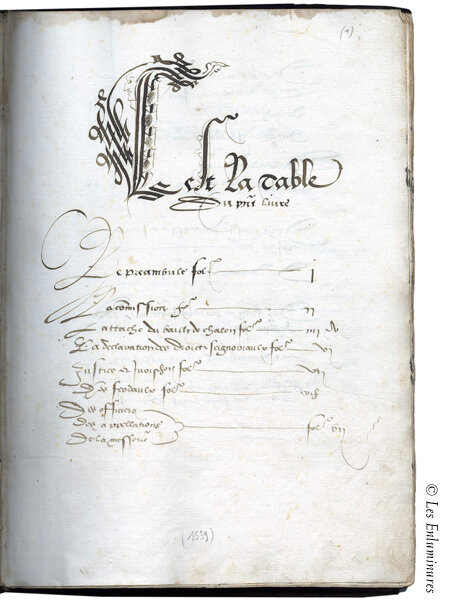 (1)
C'est la table
Du pnt livre
Le preambule fol. j
La comission fol. ij
L'attache du bailli de chalon fol. iiij v
La declaration des droictz seignoriaulx fol. vj
Justice et Jurisdition fol. vij
Des feodaulx fol.
Des officiers
Des appellations fol. vij
De la messerie
(1539)
© Les Enluminures